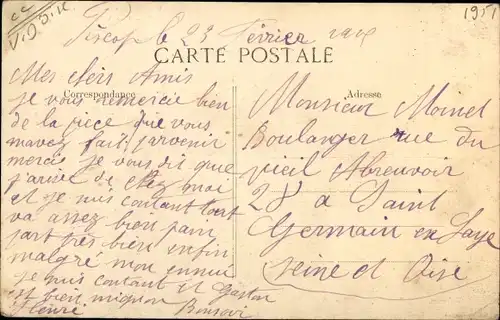 1951
Piscop le 23 Février
CARTE POSTALE
Correspondance
Adresse
Mes chers Amis
je vous remercie bien
de la que vous
mavez fait parvenir
merci je vous dit que
j'arive de chez moi
et je suis contant tout
va assez bien
part très bien enfin
malgré mon ennui
je suis contant et Gaston
est bien mignon
Henri
Monsieur Moinel
Boulanger rue du
vieil Abreuvoir
28 a Saint
Germain en Laye
Seine et Oise